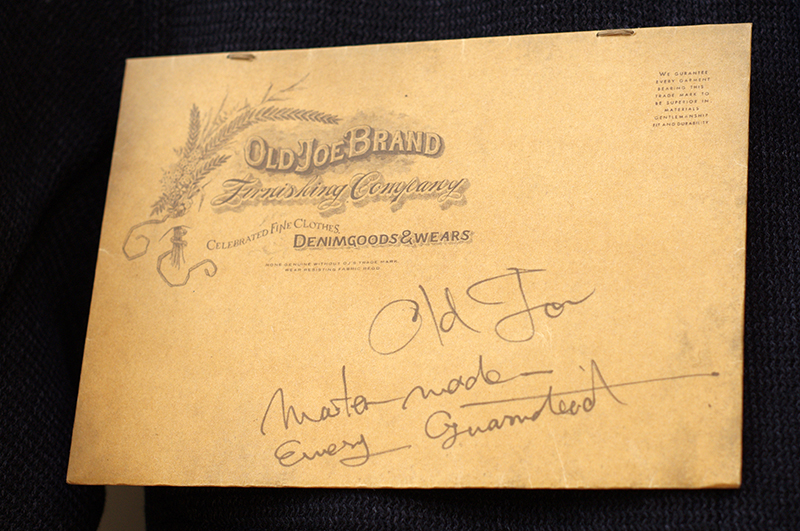 OLD JOE BRAND
Furnishing Company
CELEBRATED FINE CLOTHES,
DENIMGOODS&WEARS
NONE GENUINE WITHOUT O.J'S TRADE MARK.
WEAR RESISTING FABRIC USED.
WE GURANTEE
EVERY GARMENT
BEARING THIS
TRADE MARK TO
BE SUPERIOR IN
MATERIALS
GENTLEMANSHIP
FIT AND DURABILITY
Old Joe
Master made
Every Guaranteed